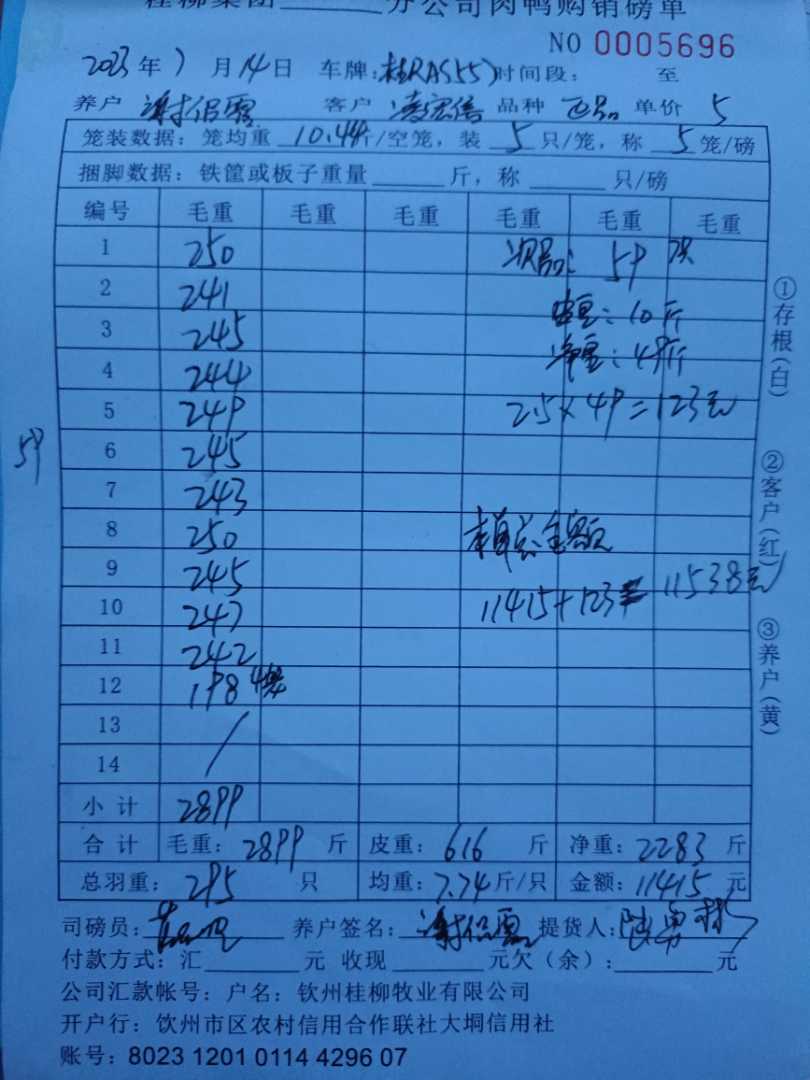 桂柳集团______分公司肉鸭购销磅单
NO 0005696
2023年7月14日 车牌:桂RAS557 时间段: 至
养户 谢侣霞 客户 凌宏信 品种 单价 5
笼装数据: 笼均重 10.44斤/空笼, 装 5 只/笼, 称 5 笼/磅
捆脚数据: 铁筐或板子重量______斤, 称______只/磅
编号 毛重 毛重 毛重 毛重 毛重 毛重
1 250 次品: 59斤
2 241 皮重: 10斤
3 245 净重: 49斤
4 244
5 249 2.5×49=123元
59
6 245
7 243
8 250 本单总金额
9 245
10 247 11415+123=11538元
11 242
12 198 4笼
13 /
14
小计 2899
合计 毛重: 2899 斤 皮重: 616 斤 净重: 2283 斤
总羽重: 295 只 均重: 7.74斤/只 金额: 11415 元
司磅员: 养户签名: 谢侣霞 提货人:
付款方式: 汇______元 收现______元欠(余):______元
公司汇款帐号: 户名: 钦州桂柳牧业有限公司
开户行: 钦州市区农村信用合作联社大垌信用社
账号: 8023 1201 0114 4296 07
①存根(白)
②客户(红)
③养户(黄)